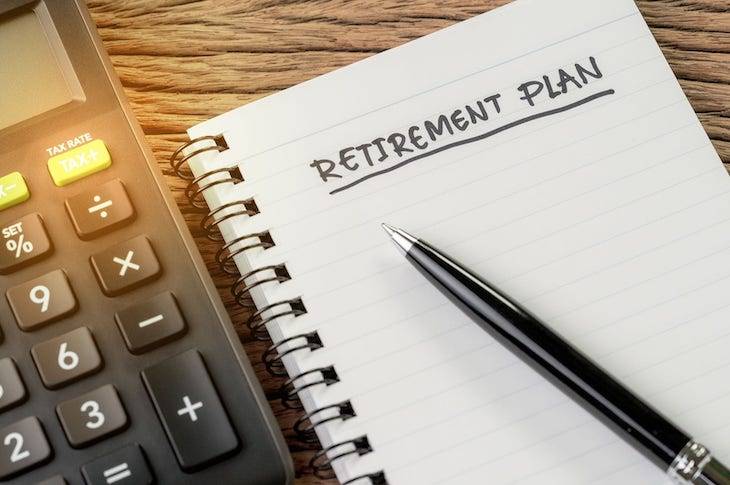 RETIREMENT PLAN
TAX RATE
TAX+
÷
SET
%
×
9
−
6
3
+
2
=